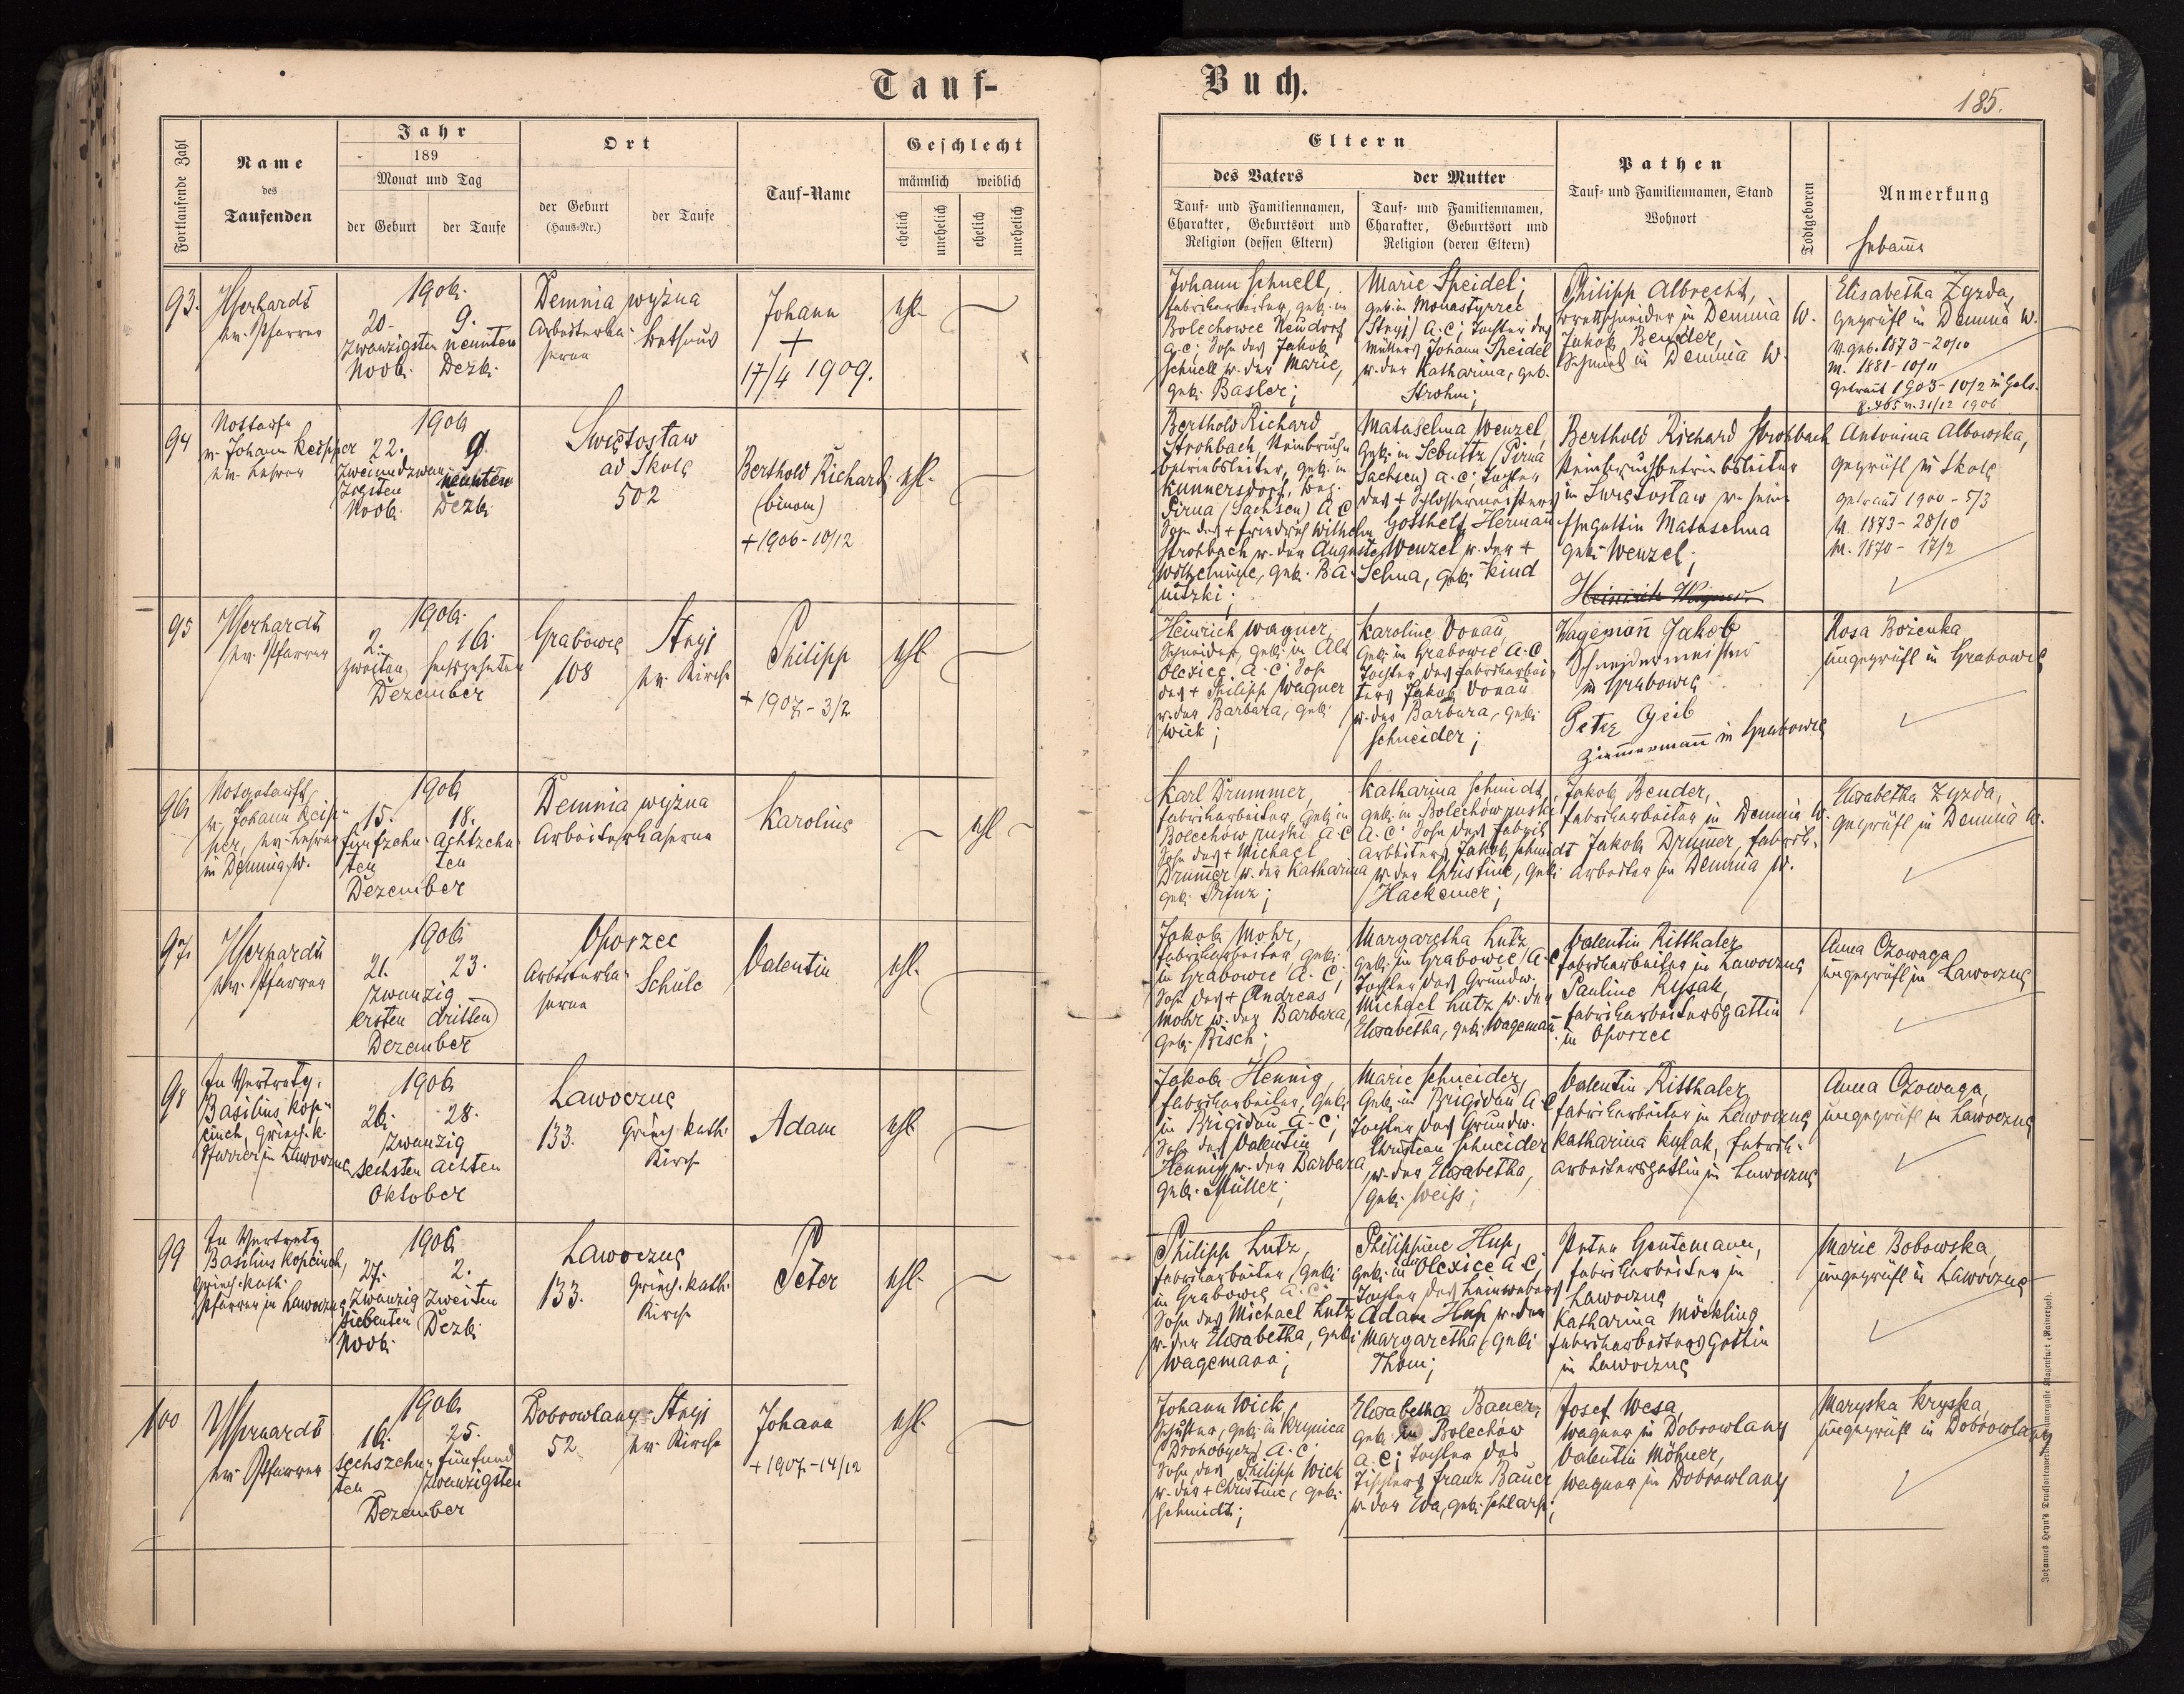 Tauf-
Buch.
185.
Fortlaufende Zahl
Name
des
Taufenden
Jahr
189
Monat und Tag
der Geburt
der Taufe
Ort
der Geburt
(Haus-Nr.)
der Taufe
Tauf-Name
Geschlecht
männlich
weiblich
ehelich
unehelich
ehelich
unehelich
Eltern
des Vaters
Tauf- und Familiennamen,
Charakter, Geburtsort und
Religion (dessen Eltern)
der Mutter
Tauf- und Familiennamen,
Charakter, Geburtsort und
Religion (deren Eltern)
Pathen
Tauf- und Familiennamen, Stand
Wohnort
Todtgeboren
Anmerkung
Hebamme
93.
ev. Pfarrer
1906.
20. 9.
zwanzigsten neunten
Novb. Dezb.
Demnia wyżna
Arbeiterka- Bethaus
serne
Johann
+
17/4 1909.
ehl.
Johann Schnell,
Fabrikarbeiter, geb. in
Bolechowce Neudorf
A.C; Sohn des Jakob
Schnell u. der Marie,
geb. Basler;
Marie Speidel;
geb. in Monastyrzec
Stryj) A.C; Tochter des
Müllers Johann Speidel
u. der Katharina, geb.
Strohm;
Philipp Albrecht,
Brettschneider in Demnia W.
Jakob Bender,
Schmied in Demnia W.
Elisabetha Zyzda,
geprüft in Demnia W.
V. geb. 1873-20/10
M. 1881-10/11
getraut 1903-10/2 in Gels.
Z. 465 v. 31/12 1906
94
Nottaufe
v. Johann Keipper
ev. Lehrer
1906
22. 9.
zweiundzwan- neunten
zigsten
Novb. Dezb.
Swiętosław
ad Skole
502
Berthold Richard
(binom)
+ 1906-10/12
ehl.
Berthold Richard
Strohbach, Steinbruchs-
betriebsleiter, geb. in
Kunnersdorf, Bez.
Pirna (Sachsen) A.C
Sohn des + Friedrich Wilhelm
Strohbach u. der Auguste
Wilhelmine, geb. Ba-
nitzki;
Mataselma Wenzel,
geb. in Sebnitz (Pirna
Sachsen) A.C; Tochter
des + Schlossermeisters
Gotthelf Herman
Wenzel u. der +
Selma, geb. Kind
Berthold Richard Strohbach
Steinbruchbetriebsleiter
in Swiętosław u. seine
Ehegattin Mataselma
geb. Wenzel;
Heinrich Wagner
Antonina Albowska,
geprüft in Skole
getraut 1900-5/3
V. 1873-28/10
M. 1870-17/2
95
ev. Pfarrer
1906.
2. 16.
zweiten sechszehnten
Dezember
Grabowce Stryj
108 ev. Kirche
Philipp
+ 1907-3/2
ehl.
Heinrich Wagner,
Schneider, geb. in Alt
Olexice A.C; Sohn
des + Philipp Wagner
u. der Barbara, geb.
Wick;
Karoline Donau
geb. in Grabowce A.C
Tochter des Fabrikarbei-
ters Jakob Donau
u. der Barbara, geb.
Schneider;
Wagemann Jakob
Schneidermeister
in Grabowce
Peter Geib
Zimmermann in Grabowce
Rosa Bożenka
ungeprüft in Grabowce
96
Notgetauft,
v. Johann Keip-
per, ev. Lehrer
in Demnia W.
1906
15. 18.
fünfzehn- achtzehn-
ten ten
Dezember
Demnia wyżna
Arbeiterkaserne
Karoline
ehl
Karl Drummer,
Fabrikarbeiter, geb. in
Bolechow ruski A.C
Sohn des + Michael
Drumer u. der Katharina
geb. Prinz;
Katharina Schmidt,
geb. in Bolechow ruski
A.C; Sohn des Fabrik
arbeiters Jakob Schmidt
u. der Christine, geb.
Hackemer;
Jakob Bender,
Fabrikarbeiter in Demnia W.
Jakob Drumer, Fabrik-
arbeiter in Demnia W.
Elisabetha Zyzda,
geprüft in Demnia W.
97
ev. Pfarrer
1906
21. 23.
zwanzig
ersten dritten
Dezember
Oporzec
Arbeiterka- Schule
serne
Valentin
ehl.
Jakob Mohr,
Fabrikarbeiter, geb.
in Grabowce A.C;
Sohn des + Andreas
Mohr u. der Barbara
geb. Risch;
Margaretha Lutz
geb. in Grabowce A.C
Tochter des Grundw.
Michael Lutz u. der
Elisabetha, geb. Wagemann
Valentin Ritthaler
Fabrikarbeiter in Lawoczne
Pauline Rysak,
Fabrikarbeitersgattin
in Oporzec
Anna Czowaga
ungeprüft in Lawoczne
98
In Vertretg.
Basilius Kop-
cinch, griech. k.
Pfarrer in Lawoczne
1906
26. 28.
zwanzig
sechsten achten
Oktober
Lawoczne
133. Griech. kath.
Kirche
Adam
ehl.
Jakob Hennig,
Fabrikarbeiter, geb.
in Brigidau A.C;
Sohn des Valentin
Hennig u. der Barbara
geb. Müller;
Marie Schneider,
geb. in Brigidau A.C
Tochter des Grundw.
Christian Schneider
u. der Elisabetha,
geb. Weiss;
Valentin Ritthaler
Fabrikarbeiter in Lawoczne
Katharina Kysak, Fabrik-
arbeitersgattin in Lawoczne
Anna Czowaga,
ungeprüft in Lawoczne
99
In Vertretg
Basilius Kopcinch,
griech. kath.
Pfarrer in Lawoczne
1906
27. 2.
zwanzig zweiten
siebenten Dezb.
Novb.
Lawoczne
133. Griech. kath.
Kirche
Peter
ehl.
Philipp Lutz,
Fabrikarbeiter, geb.
in Grabowce A.C;
Sohn des Michael Lutz
u. der Elisabetha, geb.
Wagemann;
Philippine Hup,
geb. in Olexice A.C;
Tochter des Leinwebers
Adam Hup u. der
Margaretha, geb.
Thom;
Peter Gentemann,
Fabrikarbeiter in
Lawoczne
Katharina Möckling
Fabrikarbeiters Gattin
in Lawoczne
Marie Bobowska,
ungeprüft in Lawoczne
100
ev. Pfarrer
1906
16. 25.
sechszehn- fünfund
ten zwanzigsten
Dezember
Dobrowlany Stryj
52 ev. Kirche
Johann
+ 1907-14/12
ehl.
Johann Wick,
Schuster, geb. in Krynica
Drohobycz) A.C;
Sohn des Philipp Wick
u. der + Christine, geb.
Schmidt;
Elisabetha Bauer,
geb. in Bolechow
A.C; Tochter des
Tischlers Franz Bauer
u. der Eva, geb. Schlarp;
Josef Wesa,
Wagner in Dobrowlany
Valentin Möhner,
Wagner in Dobrowlany
Maryska Kryska,
ungeprüft in Dobrowlany